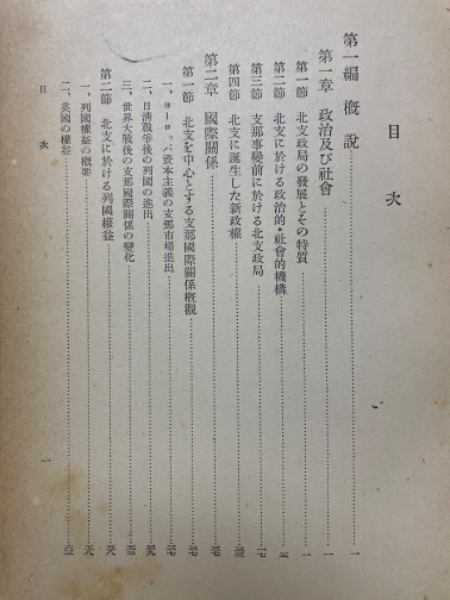 目次
第一編 概説……一
第一章 政治及び社會……一
第一節 北支政局の發展とその特質……一
第二節 北支に於ける政治的・社會的機構……五
第三節 支那事變前に於ける北支政局……一七
第四節 北支に誕生した新政權……
第二章 國際關係……
第一節 北支を中心とする支那國際關係概觀……
一、ヨーロッパ資本主義の支那市場進出……
二、日清戰爭後の列國の進出……
三、世界大戰後の支那國際關係の變化……
第二節 北支に於ける列國權益……
一、列國權益の概要……
二、英國の權益……
目次 一